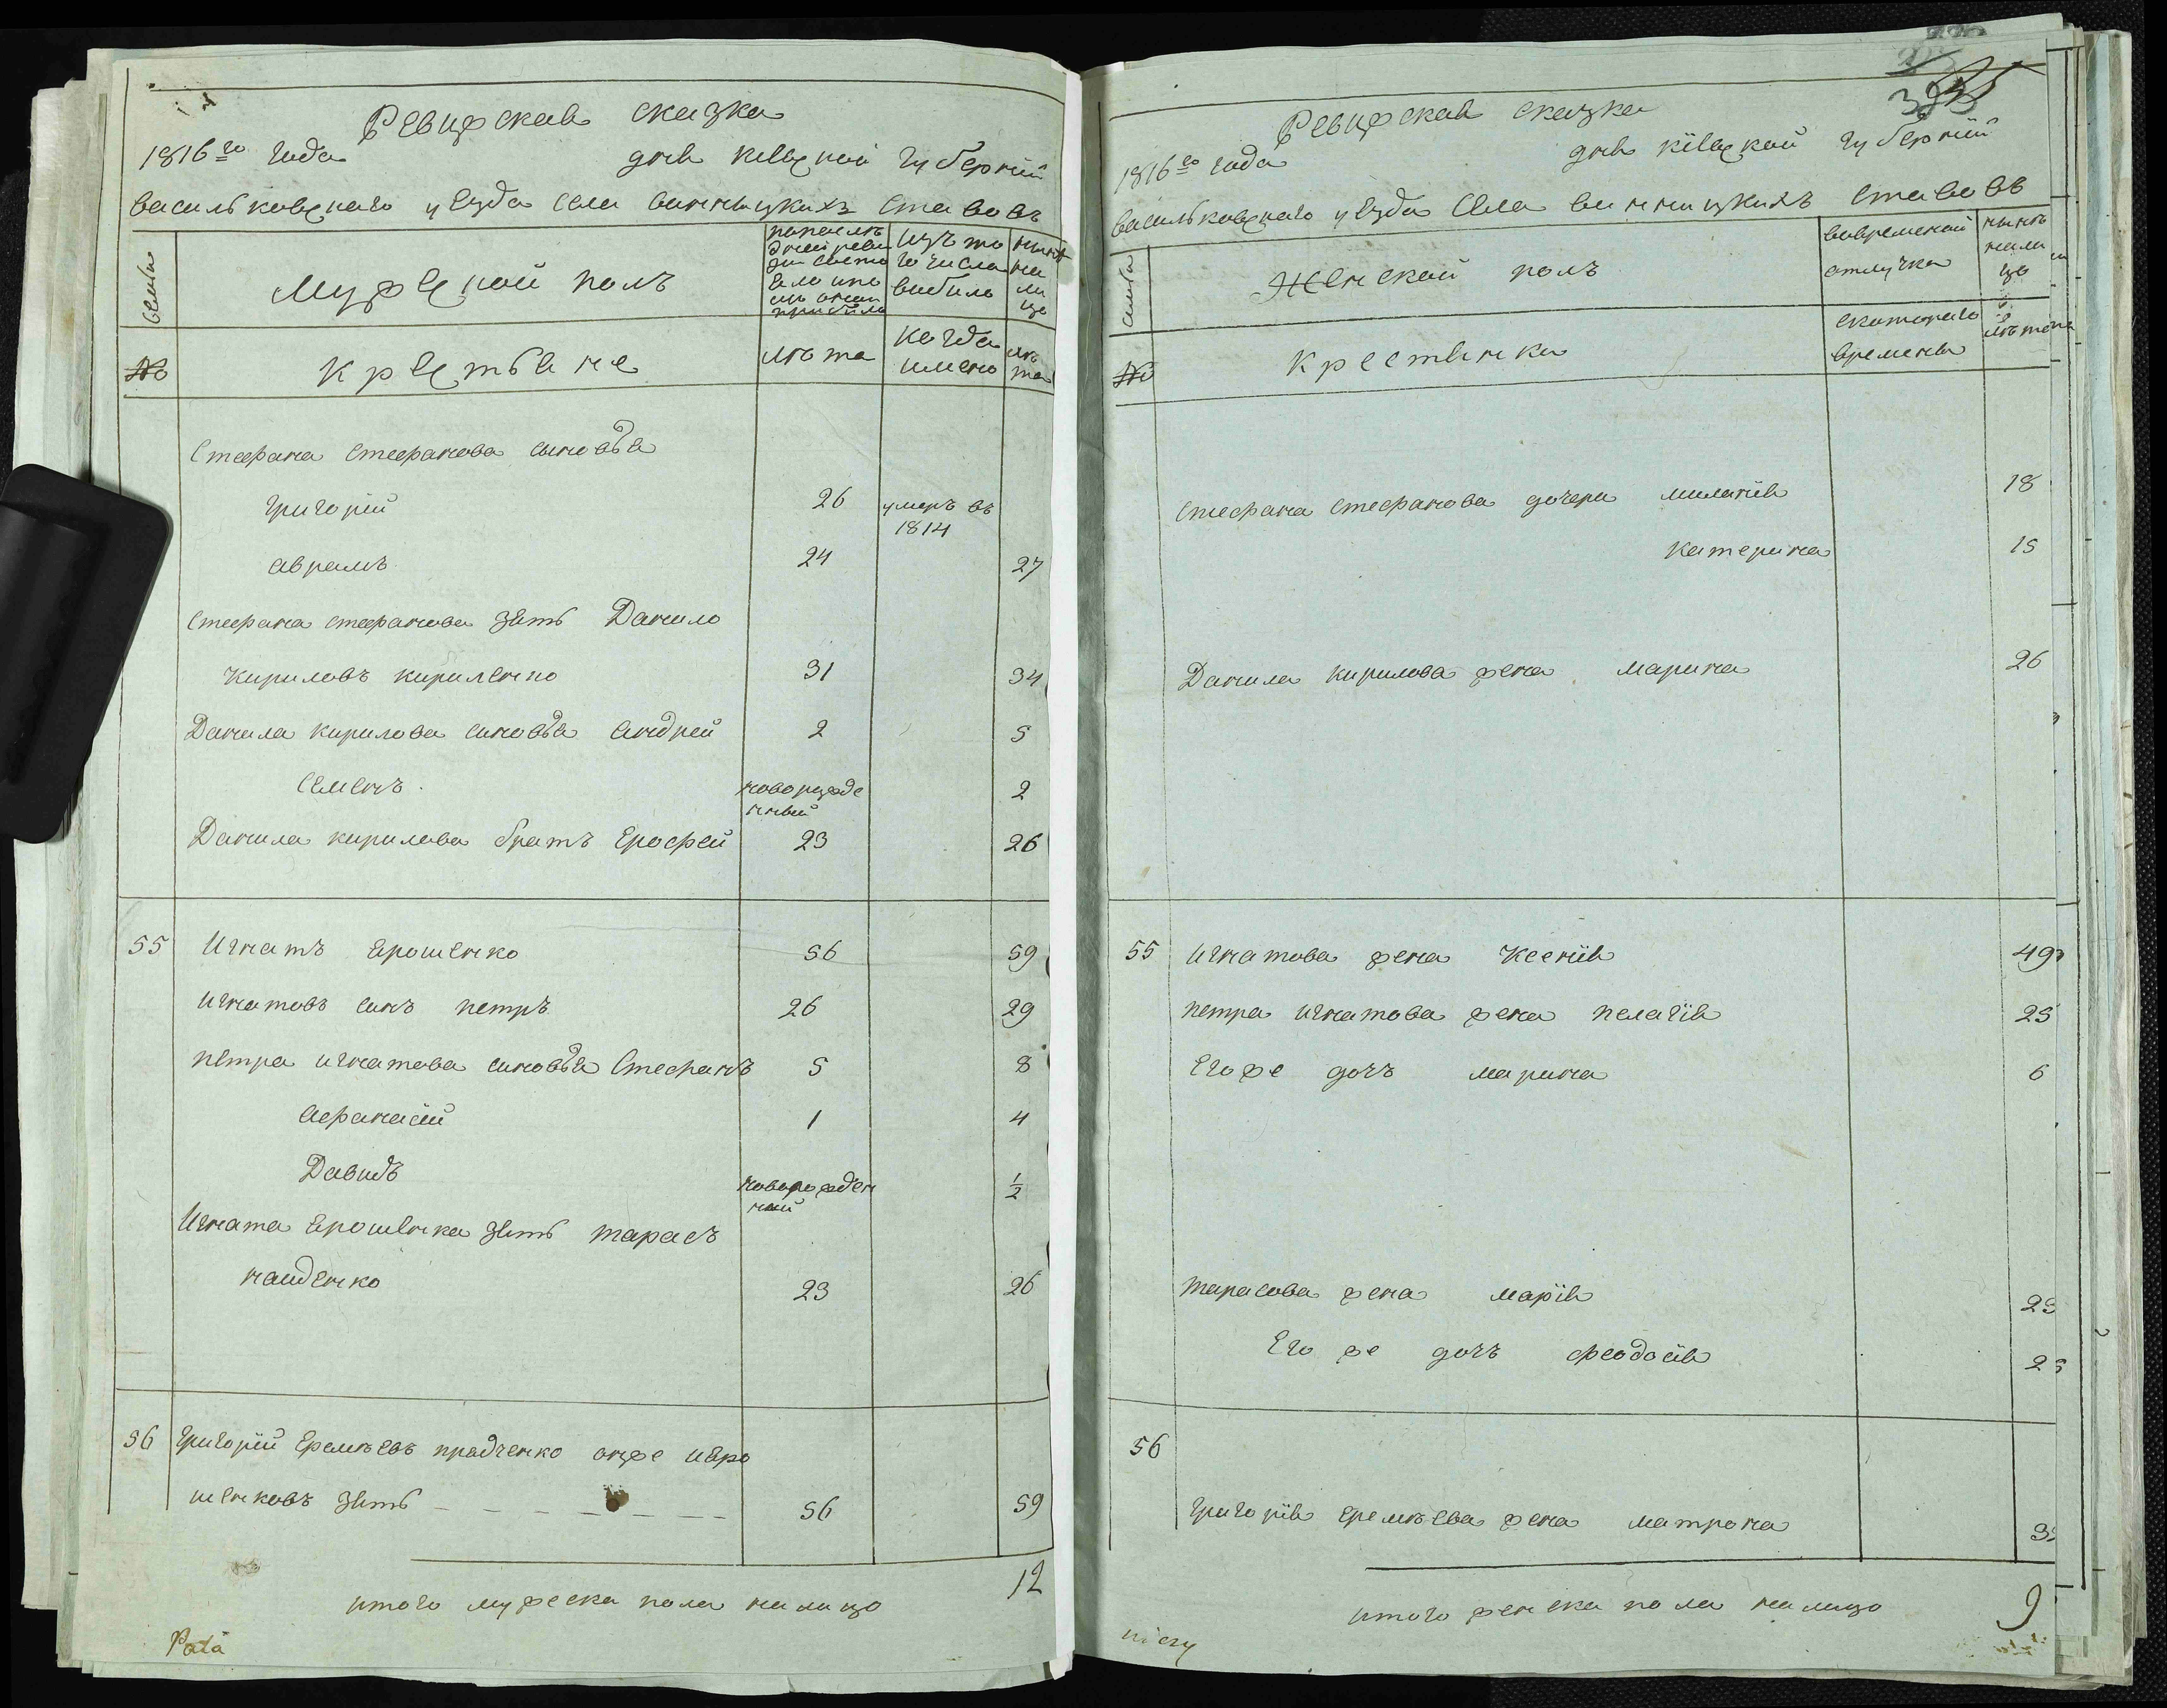 Ревижская сказка
1816го года дня киевской губернии
васильковского уезда села винницкихъ ставовъ
семьи
Мужеской полъ
изъ того числа выбыло
ныне на лицо
№
крестьяне
лета
когда имено
лета
Стефана Стефанова сыновья
Григорій 26 умеръ въ 1814
аврамъ 24 27
Стефана стефанова зять Данило
Кириловъ кириленко 31 34
Данила кирилова синовья андрей 2 5
Семенъ новорожденный 2
Данила кирилова братъ Ерофей 23 26
55 Игнатъ Ерошенко 56 59
Игнатовъ синъ петръ 26 29
петра игнатова синовья Стефанъ 5 8
Афанасій 1 4
Давидъ новорожденный ½
Игната Ерошенка зять тарасъ
найденко 23 26
56 Григорій Еремѣевъ прадченко онже и Еро
шенковъ зять 56 59
итого мужеска пола налицо 12
Ревижская сказка
1816го года дня кіевской губерніи
васильковского уезда села винницкихъ ставовъ
семьи
Женской полъ
вовременной отлучке
ныне налицо
№
крестьянки
скоторого времени
лѣта
Стефана Стефанова дочери миланія 18
Катерина 15
Данила кирилова жена марина 26
55 Игнатова жена Ксенія 49
петра игнатова жена пелагія 25
Егоже дочъ марина 6
тарасова жена марія 23
Его же дочъ феодосія
56
Григорія Еремѣева жена матрона
итого женска пола налицо 9